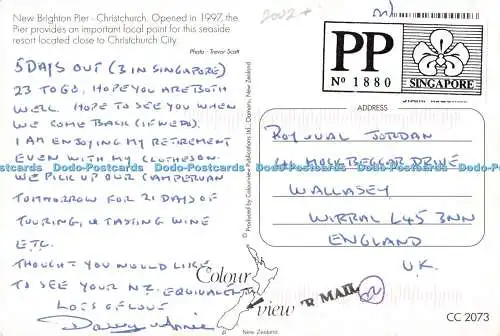 New Brighton Pier - Christchurch. Opened in 1997, the
Pier provides an important local point for this seaside
resort located close to Christchurch City.
Photo - Trevor Scott
2002
5 DAYS OUT (3 IN SINGAPORE)
23 TO GO. HOPE YOU ARE BOTH
WELL. HOPE TO SEE YOU WHEN
WE COME BACK (IF WE DO).
I AM ENJOYING MY RETIREMENT
EVEN WITH MY CLOTHES ON.
WE PICK UP OUR CAMPERVAN
TOMORROW FOR 21 DAYS OF
TOURING, & TASTING WINE
ETC.
THOUGHT YOU WOULD LIKE
TO SEE YOUR N.Z. EQUIVALENT
LOTS OF LOVE
Annie
© Produced by Colourview Publications Ltd., Oamaru, New Zealand
PP
No 1880
SINGAPORE
ADDRESS
ROY JUAL JORDAN
MOCKBEGGAR DRIVE
WALLASEY
WIRRAL L45 3NN
ENGLAND
U.K.
Colour
view
New Zealand
AIR MAIL
CC 2073
Dodo-Postcards Dodo-Postcards Dodo-Postcards Dodo-Postcards